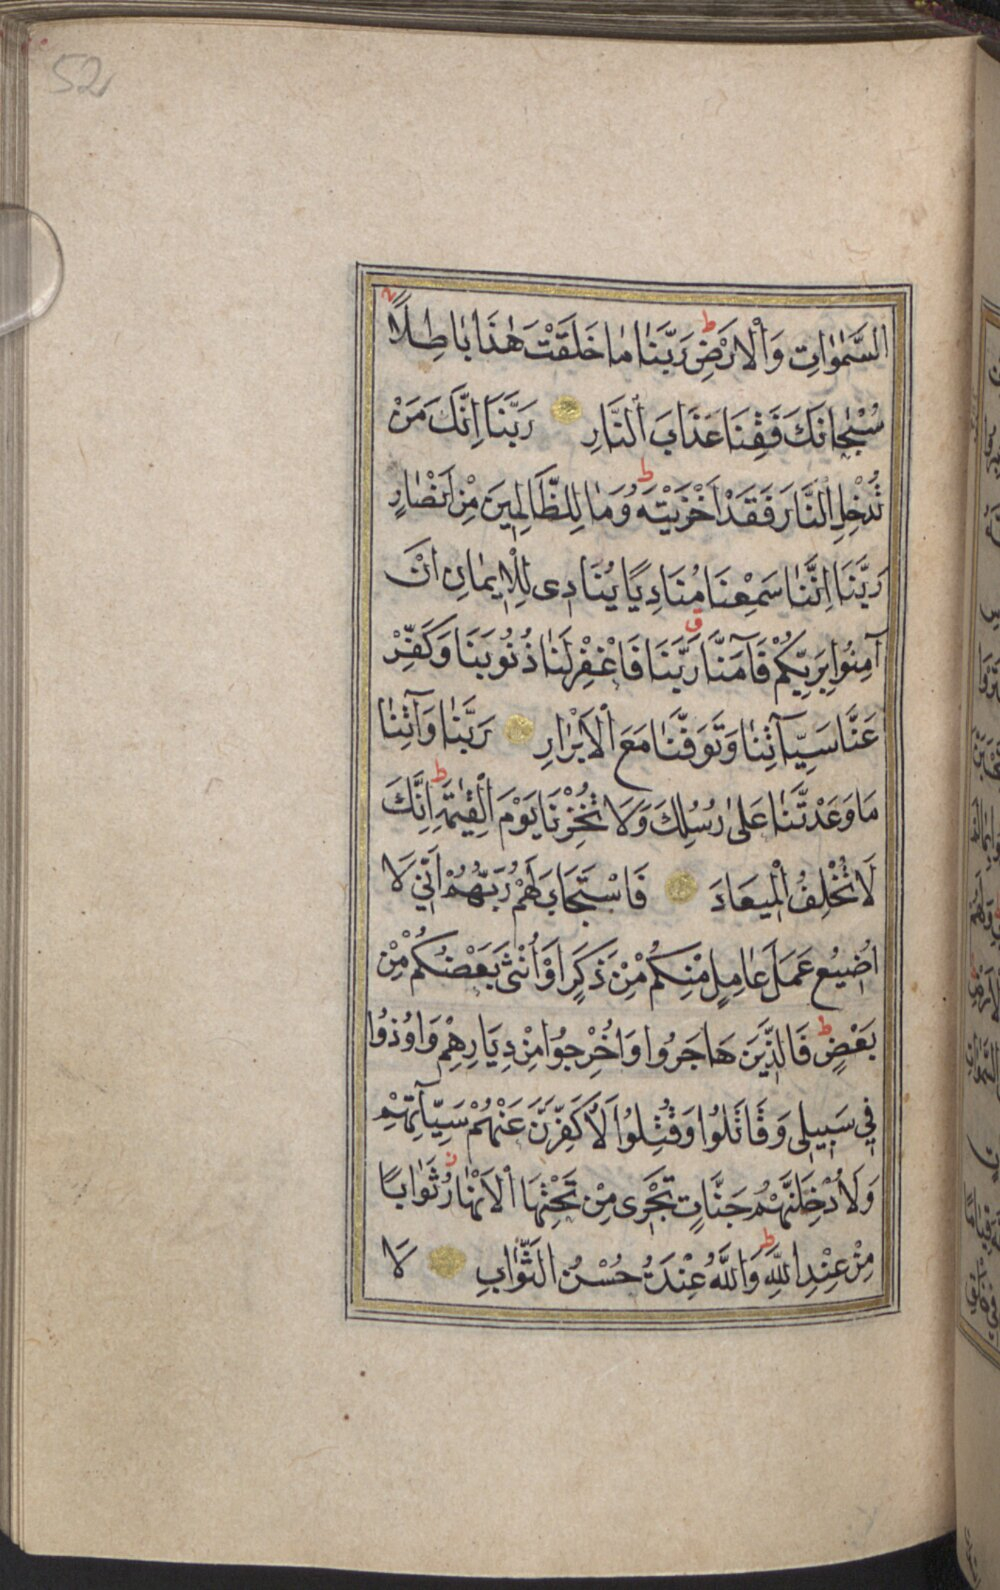 52
السَّمٰوَاتِ وَالْاَرْضِ رَبَّنَا مَا خَلَقْتَ هٰذَا بَاطِلًا
سُبْحَانَكَ فَقِنَا عَذَابَ النَّارِ رَبَّنَا اِنَّكَ مَنْ
تُدْخِلِ النَّارَ فَقَدْ اَخْزَيْتَهُ وَمَا لِلظَّالِمِينَ مِنْ اَنْصَارٍ
رَبَّنَا اِنَّنَا سَمِعْنَا مُنَادِيًا يُنَادِى لِلْاِيمَانِ اَنْ
آمِنُوا بِرَبِّكُمْ فَآمَنَّا رَبَّنَا فَاغْفِرْ لَنَا ذُنُوبَنَا وَكَفِّرْ
عَنَّا سَيِّآتِنَا وَتَوَفَّنَا مَعَ الْاَبْرَارِ رَبَّنَا وَآتِنَا
مَا وَعَدْتَنَا عَلٰى رُسُلِكَ وَلَا تُخْزِنَا يَوْمَ الْقِيٰمَةِ اِنَّكَ
لَا تُخْلِفُ الْمِيعَادَ فَاسْتَجَابَ لَهُمْ رَبُّهُمْ اَنِّى لَا
اُضِيعُ عَمَلَ عَامِلٍ مِنْكُمْ مِنْ ذَكَرٍ اَوْ اُنْثٰى بَعْضُكُمْ مِنْ
بَعْضٍ فَالَّذِينَ هَاجَرُوا وَاُخْرِجُوا مِنْ دِيَارِهِمْ وَاُوذُوا
فِى سَبِيلِى وَقَاتَلُوا وَقُتِلُوا لَاُكَفِّرَنَّ عَنْهُمْ سَيِّآتِهِمْ
وَلَاُدْخِلَنَّهُمْ جَنَّاتٍ تَجْرِى مِنْ تَحْتِهَا الْاَنْهَارُ ثَوَابًا
مِنْ عِنْدِ اللّٰهِ وَاللّٰهُ عِنْدَهُ حُسْنُ الثَّوَابِ لَا